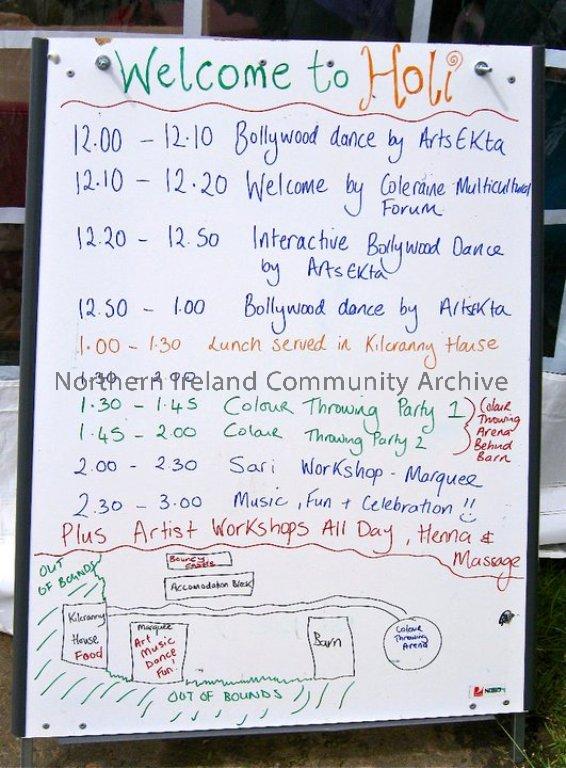 Welcome to Holi
12.00 - 12.10 Bollywood dance by ArtsEKta
12.10 - 12.20 Welcome by Coleraine Multicultural
Forum
12.20 - 12.50 Interactive Bollywood Dance
by ArtsEKta
12.50 - 1.00 Bollywood dance by ArtsEkta
1.00 - 1.30 Lunch served in Kilcranny House
Northern Ireland Community Archive
1.30 - 1.45 Colour Throwing Party 1
1.45 - 2.00 Colour Throwing Party 2
Colour
Throwing
Arena
Behind
Barn
2.00 - 2.30 Sari Workshop - Marquee
2.30 - 3.00 Music, Fun + Celebration !!
Plus Artist Workshops All Day, Henna &
Massage
OUT
OF BOUNDS
Bouncy
Castle
Accomodation Block
Kilcranny
House
Food
Marquee
Art
Music
Dance
Fun!
Barn
Colour
Throwing
Arena
OUT OF BOUNDS
NOBO